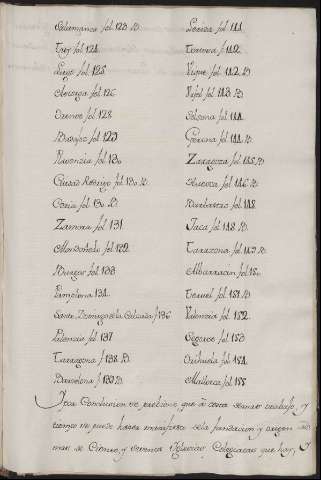 Salamanca fol. 123. B.
Tuy fol. 124.
Lugo fol. 125
Astorga fol. 126
Orense fol. 128
Badajoz fol. 129
Plasencia fol. 130
Ciudad Rodrigo fol. 130. B.
Coria fol. 130. B.
Zamora fol. 131.
Mondoñedo fol. 132.
Burgos fol. 133
Pamplona 134.
Santo Domingo de la Calzada f. 136
Palencia fol. 137
Tarragona f. 138. B.
Barcelona f. 139. B.
Lerida fol. 141.
Tortosa f. 142.
Vique fol. 142. B.
Urgel fol. 143. B.
Solsona fol. 144.
Gerona fol. 144. B.
Zaragoza fol. 145. B.
Huesca fol. 146. B.
Barbastro fol. 148.
Jaca fol. 148. B.
Tarazona fol. 149. B.
Albarracin fol. 150.
Teruel fol. 151. B.
Valencia fol. 152.
Segorve fol. 153
Orihuela fol. 154.
Mallorca fol. 155
Por Conclusion se previene que à costa de mas trabajo, y
tiempo se puede hacer manifiesto la fundacion y origen
mas de Ciento, y Noventa Iglesias Colegiatas que hay, y